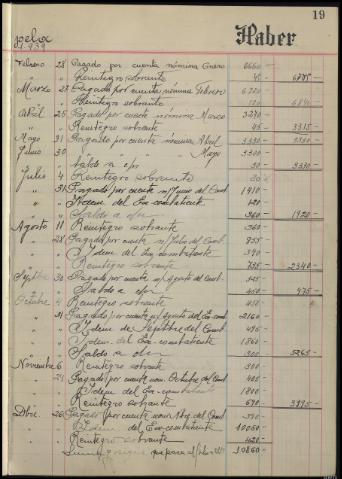 19
1.939
Haber
Febrero 28 Pagado por cuenta nómina Enero 6660
" " Reintegro sobrante 45 6705
Marzo 27 Pagado por cuenta nómina Febrero 6720
" " Reintegro sobrante 120 6840
Abril 25 Pagado por cuenta nómina Marzo 3270
" " Reintegro sobrante 45 3315
Mayo 31 Pagado por cuenta nómina Abril 3330 3330
Junio 30 " " " Mayo 3300
" " Saldo a c/n 30 3330
Julio 4 Reintegro sobrante 30
" 31 Pagado por cuenta n/ Junio del Comb. 1410
" " Idem del Ex-combatiente 120
" " Saldo a c/n 360 1920
Agosto 11 Reintegro sobrante 360
" 28 Pagado por cuenta n/ Julio del Comb. 855
" " Idem del Ex-combatiente 390
" " Reintegro sobrante 735 2340
30 Pagado por cuenta n/ Agosto del Comb.
" " Saldo a c/n 450 975
Octubre 4 Reintegro sobrante 450
" 31 Pagado por cuenta n/ Agosto del Ex-comb. 2160
" " Idem de Sepbre del Comb. 495
" " Idem del Ex-combatiente 1860
" " Saldo a c/n 300 5265
Noviembre 6 Reintegro sobrante 300
Pagado por cuenta nom. Octubre del Comb. 495
" " Idem del Ex-combatiente 1800
" " Reintegro sobrante 670 3195
Dbre. 26 Pagado por cuenta nom. Nbre. del Comb. 390
" " Idem del Ex-combatiente 10050
" " Reintegro sobrante 420
10860